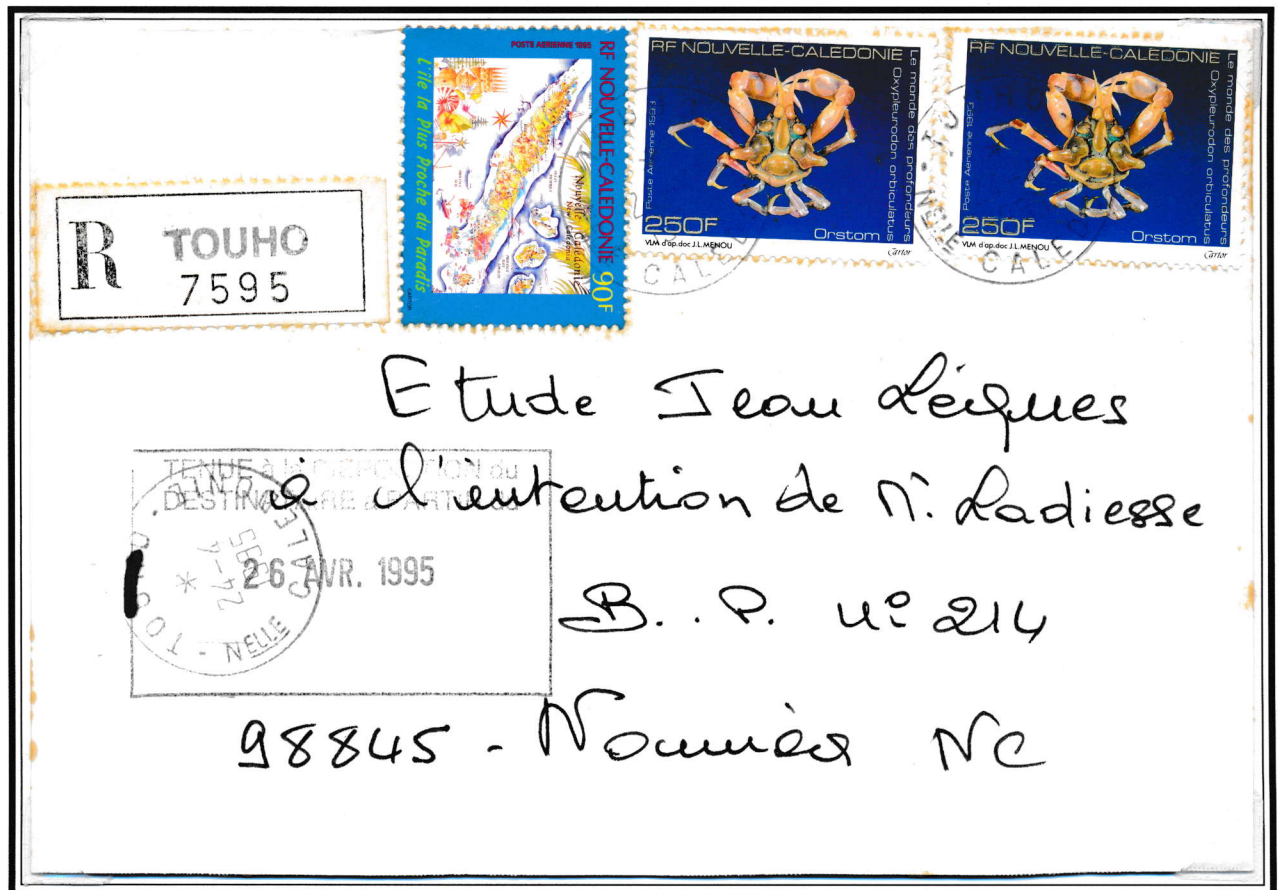 POSTE AERIENNE 1995
RF NOUVELLE-CALEDONIE 90F
L'île la Plus Proche du Paradis
Nouvelle Calédonie
New Caledonia
CARTOR
RF NOUVELLE-CALEDONIE
Le monde des profondeurs
Oxypleurodon orbiculatus
Poste Aérienne 1995
250F
Orstom
VLM d'ap.doc J.L.MENOU
Cartor
RF NOUVELLE-CALEDONIE
Le monde des profondeurs
Oxypleurodon orbiculatus
Poste Aérienne 1995
250F
Orstom
VLM d'ap.doc J.L.MENOU
Cartor
CALED
NELLE CALED
R TOUHO
7595
Etude Jean Lèques
à l'intention de M. Ladiesse
B.P. n° 214
98845 - Nouméa NC
TENUE à la DISPOSITION du
DESTINATAIRE à PARTIR du
26 AVR. 1995
24-4
1995
NELLE CALED